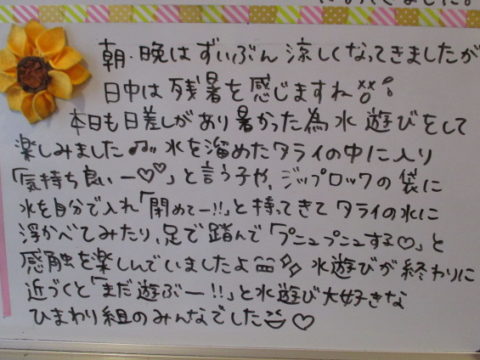 朝・晩はずいぶん涼しくなってきましたが
日中は残暑を感じますね
本日も日差しがあり暑かった為水遊びをして
楽しみました♫ 水を溜めたタライの中に入り
「気持ち良いー♡♡」と言う子や、ジップロックの袋に
水を自分で入れ「閉めてー!!」と持ってきてタライの水に
浮かべてみたり、足で踏んで「プニュプニュする♡」と
感触を楽しんでいましたよ 水遊びが終わりに
近づくと「まだ遊ぶー!!」と水遊び大好きな
ひまわり組のみんなでした♡